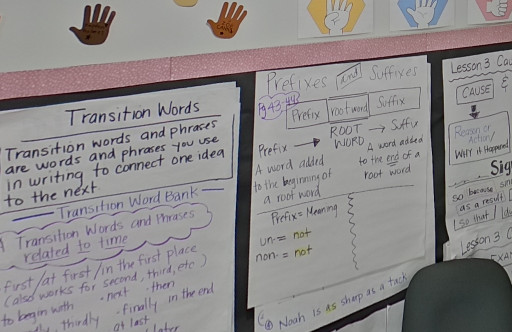 Transition Words
Transition words and phrases
are words and phrases you use
in writing to connect one idea
to the next
Transition Word Bank
Transition Words and Phrases
related to time
first/at first/in the first place
(also works for second, third, etc)
to begin with · next · then
thirdly · finally in the end
at last later
Prefixes and Suffixes
Prefix root word Suffix
Prefix → ROOT WORD → Suffix
A word added
to the beginning of
a root word
A word added
to the end of a
root word
Prefix = Meaning
un- = not
non- = not
Noah is as sharp as a tack
Lesson 3
CAUSE &
Reason or
Action/
WHY it Happened
so because
as a result
so that
Lesson 3